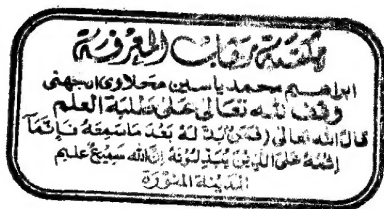 مكتبة رحاب المعرفة
ابراهيم محمد ياسين محلاوي الجهني
وقف لله تعالى على طلبة العلم
قال الله تعالى (فمن بدّله بعد ما سمعه فإنّما
إثمه على الذين يبدّلونه إنّ الله سميع عليم
المدينة المنورة